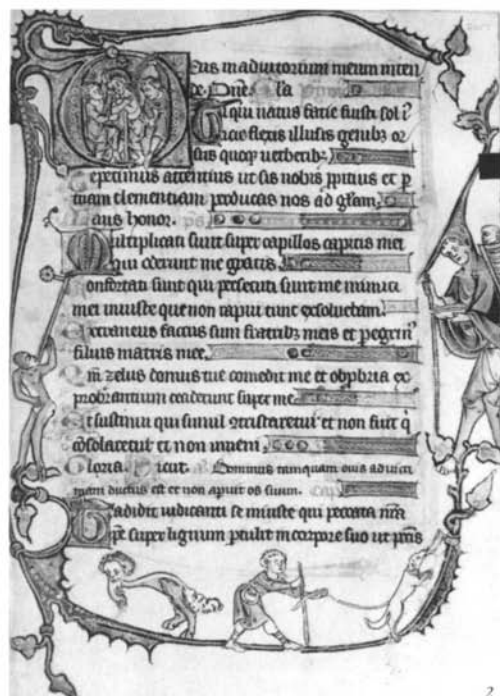 Deus in adiutorium meum inten
de. Dne. Gla
Qui facie fuisti sol i
ticie flexis illusis genibz
sus uerberibz
Te petimus attentius ut sis nobis ppitius et p
tuam clementiam perducas nos ad glam.
Laus honor. ps
Multiplicati sunt super capillos capitis mei
qui oderunt me gratis.
Confortati sunt qui persecuti sunt me inimici
mei iniuste que non rapui tunc exsoluebam.
Extraneus factus sum fratribz meis et pegrin
filiis matris mee.
Qm zelus domus tue comedit me et obpbria ex
probrantium ceciderunt super me.
Et sustinui qui simul ɔtristaretur et non fuit q
ɔsolaretur et non inueni.
Gloria. Sicut. Dominus tamquam ouis ad uicti
mam ductus est et non apuit os suum. cap
Tradidit iudicanti se iniuste qui peccata nra
ipe super lignum ptulit in corpore suo ut
2